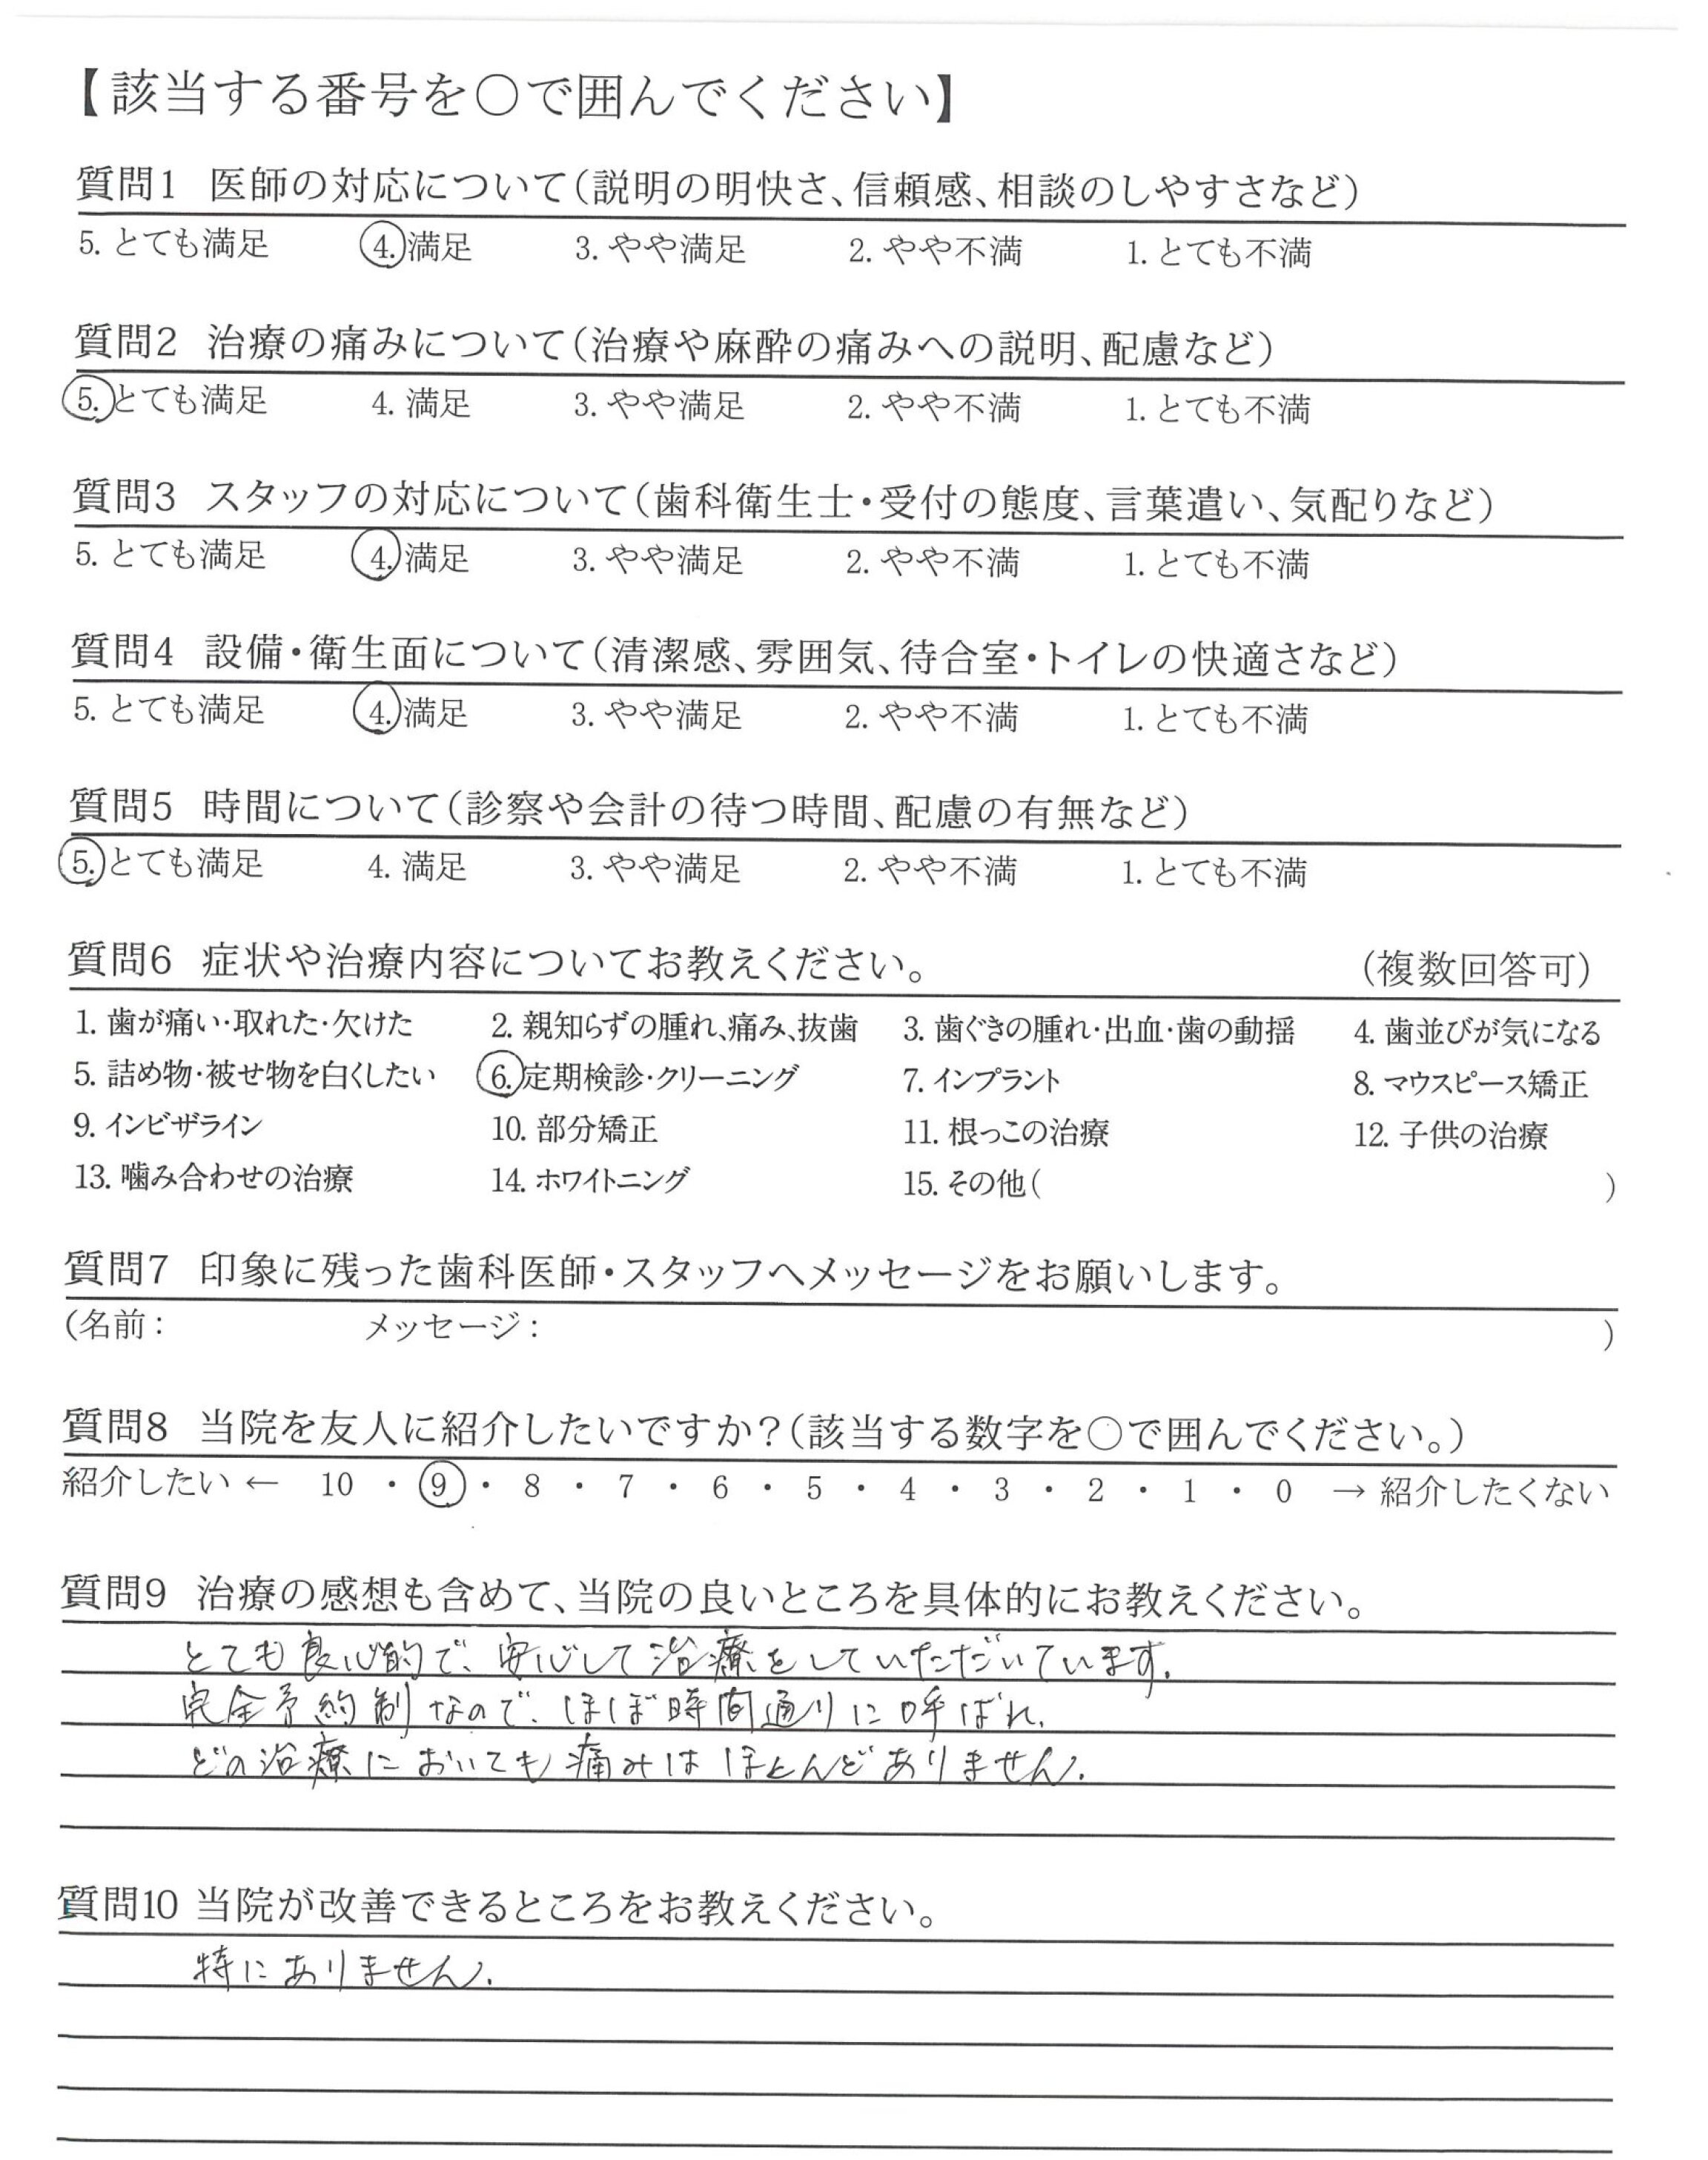 【該当する番号を〇で囲んでください】
質問1 医師の対応について(説明の明快さ、信頼感、相談のしやすさなど)
5. とても満足 4. 満足 3. やや満足 2. やや不満 1. とても不満
質問2 治療の痛みについて(治療や麻酔の痛みへの説明、配慮など)
5. とても満足 4. 満足 3. やや満足 2. やや不満 1. とても不満
質問3 スタッフの対応について(歯科衛生士・受付の態度、言葉遣い、気配りなど)
5. とても満足 4. 満足 3. やや満足 2. やや不満 1. とても不満
質問4 設備・衛生面について(清潔感、雰囲気、待合室・トイレの快適さなど)
5. とても満足 4. 満足 3. やや満足 2. やや不満 1. とても不満
質問5 時間について(診察や会計の待つ時間、配慮の有無など)
5. とても満足 4. 満足 3. やや満足 2. やや不満 1. とても不満
質問6 症状や治療内容についてお教えください。 (複数回答可)
1. 歯が痛い・取れた・欠けた 2. 親知らずの腫れ、痛み、抜歯 3. 歯ぐきの腫れ・出血・歯の動揺 4. 歯並びが気になる
5. 詰め物・被せ物を白くしたい 6. 定期検診・クリーニング 7. インプラント 8. マウスピース矯正
9. インビザライン 10. 部分矯正 11. 根っこの治療 12. 子供の治療
13. 噛み合わせの治療 14. ホワイトニング 15. その他( )
質問7 印象に残った歯科医師・スタッフへメッセージをお願いします。
(名前: メッセージ: )
質問8 当院を友人に紹介したいですか?(該当する数字を〇で囲んでください。)
紹介したい ← 10 ・ 9 ・ 8 ・ 7 ・ 6 ・ 5 ・ 4 ・ 3 ・ 2 ・ 1 ・ 0 → 紹介したくない
質問9 治療の感想も含めて、当院の良いところを具体的にお教えください。
とても良心的で、安心して治療をしていただいています。
完全予約制なので、ほぼ時間通りに呼ばれ、
どの治療においても痛みはほとんどありません。
質問10 当院が改善できるところをお教えください。
特にありません。